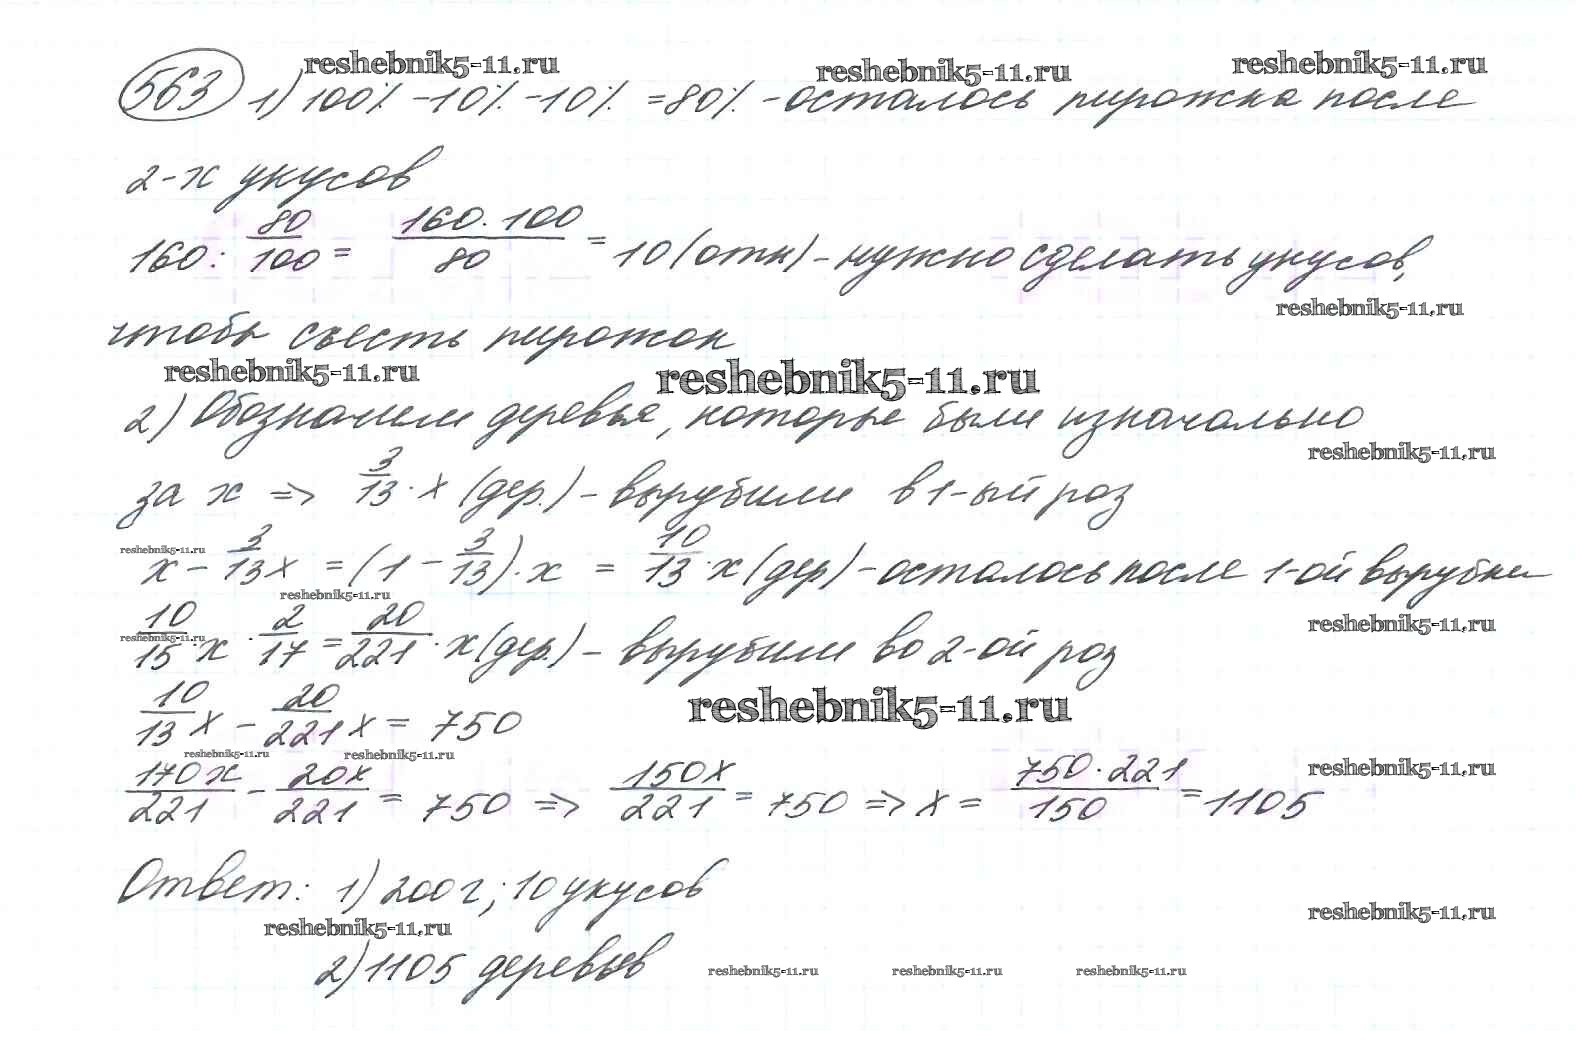 reshebnik5-11.ru reshebnik5-11.ru reshebnik5-11.ru
563 1) 100% -10% -10% = 80% - осталось пирожка после
2-х укусов
160 : 80/100 = 160·100/80 = 10 (отк) - нужно сделать укусов,
reshebnik5-11.ru
чтобы съесть пирожок
reshebnik5-11.ru reshebnik5-11.ru
2) Обозначим деревья, которые были изначально
reshebnik5-11.ru
за x => 3/13 · x (дер.) - вырубили в 1-ый раз
reshebnik5-11.ru
x - 3/13 x = (1 - 3/13) · x = 10/13 · x (дер) - осталось после 1-ой вырубки
reshebnik5-11.ru
reshebnik5-11.ru reshebnik5-11.ru
10/15 · x · 2/17 = 20/221 · x (дер.) - вырубили во 2-ой раз
10/13 x - 20/221 x = 750
reshebnik5-11.ru
reshebnik5-11.ru reshebnik5-11.ru reshebnik5-11.ru
170x/221 - 20x/221 = 750 => 150x/221 = 750 => x = 750·221/150 = 1105
Ответ: 1) 200 г; 10 укусов
reshebnik5-11.ru reshebnik5-11.ru
2) 1105 деревьев
reshebnik5-11.ru reshebnik5-11.ru reshebnik5-11.ru